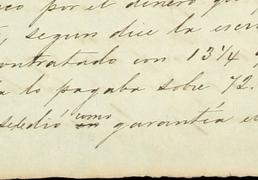 co por el dinero que
, segun dice la escri
contratado con 13 1/4
a lo pagaba sobre 72.
sededió como garantía el